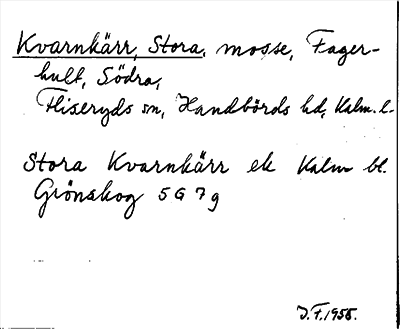 Kvarnkärr, Stora, mosse, Fager-
hult, Södra,
Fliseryds sn, Handbörds hd, Kalm. l.
Stora Kvarnkärr ek Kalm bl.
Grönskog 5 G 7 g
J.F. 1955.